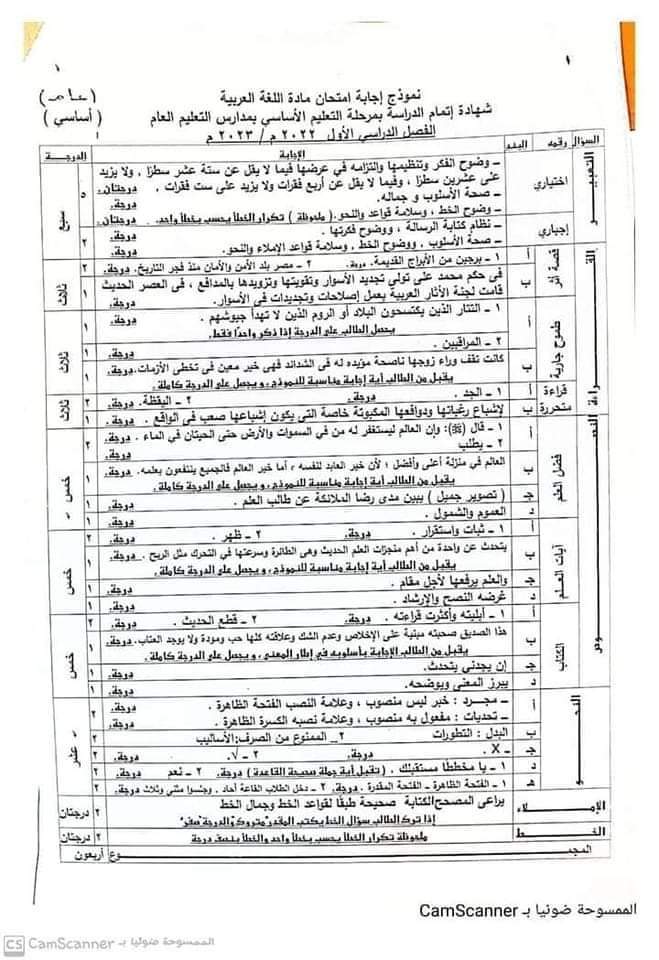 ١
١
نموذج إجابة امتحان مادة اللغة العربية
(عام)
شهادة إتمام الدراسة بمرحلة التعليم الأساسي بمدارس التعليم العام
(أساسي)
الفصل الدراسي الأول ٢٠٢٢ م / ٢٠٢٣ م
السؤال رقمه البند الإجابة الدرجة
التعبير
اختياري
– وضوح الفكر وتنظيمها والتزامه في عرضها فيما لا يقل عن ستة عشر سطرًا ، ولا يزيد
على عشرين سطرًا ، وفيما لا يقل عن أربع فقرات ولا يزيد على ست فقرات . درجتان.
– صحة الأسلوب و جماله. درجة.
– وضوح الخط، وسلامة قواعد والنحو.( ملحوظة ) تكرار الخطأ يحسب بخطأ واحد. درجتان.
٥
سبع
إجباري
– نظام كتابة الرسالة ، ووضوح فكرتها . درجة.
– صحة الأسلوب ، ووضوح الخط، وسلامة قواعد الإملاء والنحو. درجة.
٢
القراءة
قصة أثر
أ ١ – برجين من الأبراج القديمة. درجة. ٢ – مصر بلد الأمن والأمان منذ فجر التاريخ. درجة. ٢
ب في حكم محمد على تولي تجديد الأسوار وتقويتها وتزويدها بالمدافع ، فى العصر الحديث
قامت لجنة الأثار العربية بعمل إصلاحات وتجديدات فى الأسوار. ١
ثلاث
طموح جارية
أ ١ – التتار الذين يكتسحون البلاد أو الروم الذين لا تهدأ جيوشهم .
يحصل الطالب على الدرجة إذا ذكر واحدًا فقط. ١
٢ – المراقبين . درجة. ١
ب كانت تقف وراء زوجها ناصحة مؤيده له فى الشدائد فهى خير معين فى تخطى الأزمات. درجة.
يقبل من الطالب أية إجابة مناسبة للنموذج، و يحصل على الدرجة كاملة. ١
ثلاث
قراءة متحررة
أ ١ – الجد . درجة. ٢ – اليقظة. درجة. ٢
ب لإشباع رغباتها ودوافعها المكبوتة خاصة التى يكون إشباعها صعب فى الواقع . ١
ثلاث
النصوص
فضل العلم
أ ١ – قال (ﷺ): وإن العالم ليستغفر له من في السموات والأرض حتى الحيتان في الماء . درجة.
٢ – يطلب درجة. ٢
ب العالم في منزلة أعلى وأفضل ؛ لأن خير العابد لنفسه ، أما خير العالم فالجميع ينتفعون بعلمه.
يقبل من الطالب أية إجابة مناسبة للنموذج، و يحصل على الدرجة كاملة. درجة. ١
جـ ( تصوير جميل ) يبين مدى رضا الملائكة عن طالب العلم . درجة. ١
د العموم والشمول . درجة. ١
خمس
آيات العلم
أ ١ – ثبات واستقرار . درجة. ٢ – ظهر . درجة. ٢
ب يتحدث عن واحدة من أهم منجزات العلم الحديث وهى الطائرة وسرعتها في التحرك مثل الريح . درجة.
يقبل من الطالب أية إجابة مناسبة للنموذج، و يحصل على الدرجة كاملة. ١
جـ والعلم يرفعها لأجل مقام . درجة. ١
د غرضه النصح والإرشاد . درجة. ١
خمس
الكتاب
أ ١ – أبليته وأكثرت قراءته . درجة. ٢ – قطع الحديث . درجة. ٢
ب هذا الصديق صحبته مبنية على الإخلاص وعدم الشك وعلاقته كلها حب ومودة ولا يوجد العتاب. درجة.
يقبل من الطالب الإجابة بأسلوبه في إطار المعنى، و يحصل على الدرجة كاملة. ١
جـ إن يجدني يتحدث. درجة. ١
د يبرز المعنى ويوضحه. درجة. ١
خمس
النحو
أ – مجرد : خبر ليس منصوب ، وعلامة النصب الفتحة الظاهرة .
– تحديات : مفعول به منصوب ، وعلامة نصبه الكسرة الظاهرة . ٢
ب البدل : التطورات ٢_ الممنوع من الصرف: الأساليب ٢
جـ – X . درجة. ٢ – √ . درجة. ٢
د ١ – يا مخططًا مستقبلك . ( تقبل أية جملة صحيحة القاعدة ) درجة. ٢ – نعم درجة. ٢
هـ ١ – الفتحة الظاهرة – الفتحة المقدرة. درجة. ٢ – دخل الطلاب القاعة أحاد . وجلسوا مثنى وثلاث درجة. ٢
عشر
الإملاء يراعى المصحح الكتابة صحيحة طبقًا لقواعد الخط وجمال الخط ٢ درجتان
إذا ترك الطالب سؤال الخط يكتب المقدر "متروك" والدرجة "صفر"
الخط ملحوظة تكرار الخطأ يحسب بخطأ واحد والخطأ بنصف درجة ٢ درجتان
المجموع أربعون
الممسوحة ضوئيا بـ CamScanner
CS CamScanner الممسوحة ضوئيا بـ